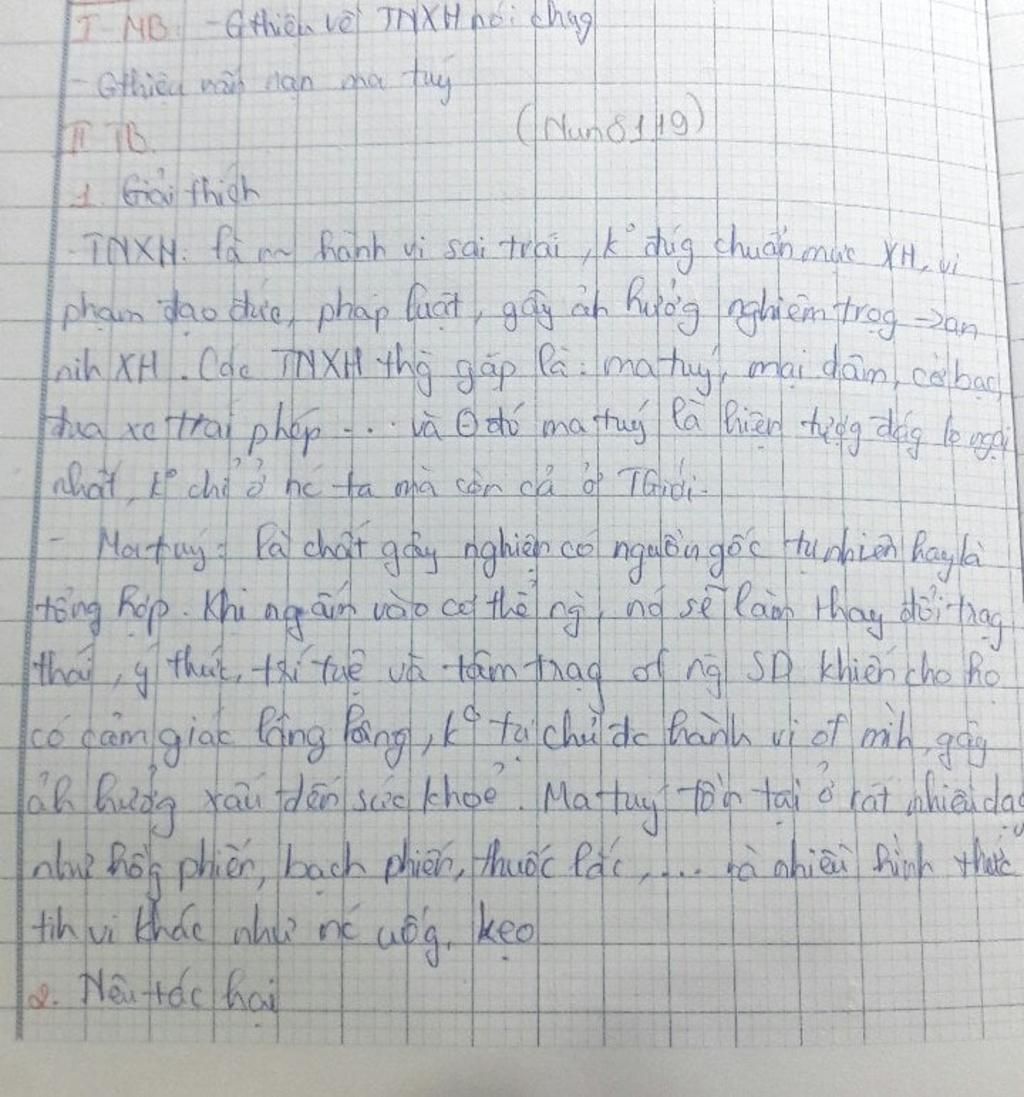 I - MB. - Gthiệu về TNXH nói chug
- Gthiệu vấn nạn ma tuý
II TB.
(Nun8119)
1. Giải thích
- TNXH: là hành vi sai trái, k° đúg chuẩn mực XH, vi
phạm đạo đức, pháp luật, gây ảh hưởg nghiêm trọg → an
nih XH. Các TNXH thg gặp là: ma tuý, mại dâm, cờ bạc,
đua xe trái phép ... và đó ma tuý là hiện tượg đág lo ngại
nhất, k° chỉ ở nc ta mà còn cả ở TGiới.
- Ma tuý: là chất gây nghiện có nguồn gốc tự nhiên hay là
tổng hợp. Khi ngấm vào cơ thể ng, nó sẽ làm thay đổi trạg
thái, ý thức, trí tuệ và tâm trạg of ng SD khiến cho họ
có cảm giác lâng lâng, k° tự chủ đc hành vi of mìh, gây
ảh hưởg xấu đến sức khoẻ. Ma tuý tồn tại ở rất nhiều dạg
như hồg phiến, bạch phiến, thuốc lắc, .... và nhiều hình thức
tih vi khác như nc uốg, kẹo
2. Nêu tác hại